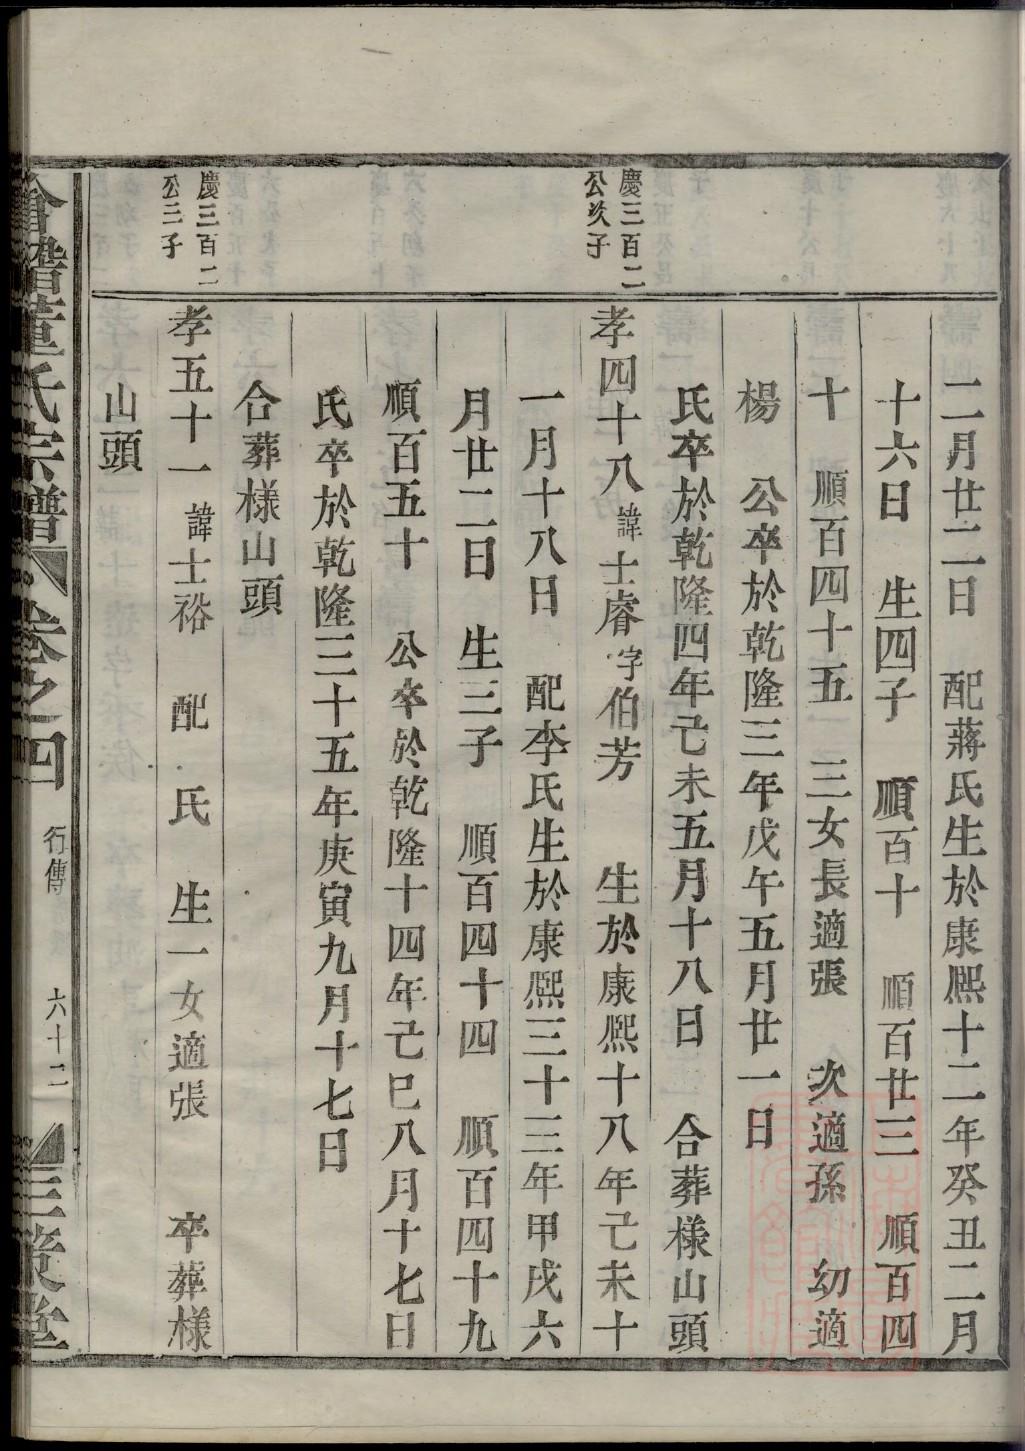 二月廿二日　配蔣氏生於康熙十二年癸丑二月
十六日　生四子　順百十　順百廿三　順百四
十　順百四十五　三女長適張　次適孫　幼適
楊　公卒於乾隆三年戊午五月廿一日
氏卒於乾隆四年己未五月十八日　合葬様山頭
慶三百二
公次子
孝四十八　諱士睿字伯芳　生於康熙十八年己未十
一月十八日　配李氏生於康熙三十三年甲戌六
月廿二日　生三子　順百四十四　順百四十九
順百五十　公卒於乾隆十四年己巳八月十七日
氏卒於乾隆三十五年庚寅九月十七日
合葬様山頭
慶三百二
公三子
孝五十一　諱士裕　配　氏　生一女適張　卒葬様
山頭
會稽董氏宗譜　卷之四　行傳　六十二　三策堂